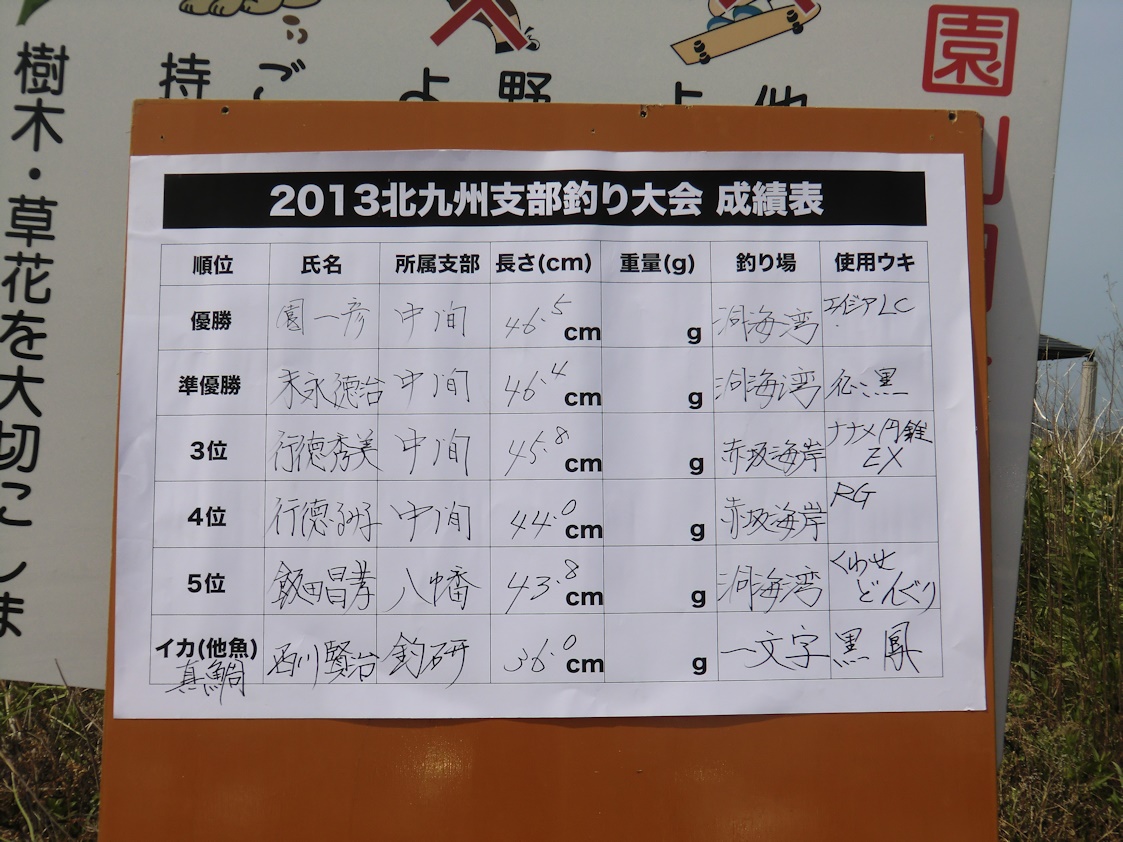 樹木・草花を大切に しま
持 ご
よ 野
上 他
園
2013北九州支部釣り大会 成績表
順位 氏名 所属支部 長さ(cm) 重量(g) 釣り場 使用ウキ
優勝 園一彦 中間 46.5cm g 洞海湾 エイジアLC
準優勝 末永德治 中間 46.4cm g 洞海湾 黒
3位 行德秀美 中間 45.8cm g 赤坂海岸 ナナメ円錐
EX
4位 行德るみ子 中間 44.0cm g 赤坂海岸 RG
5位 飯田昌孝 八幡 43.8cm g 洞海湾 くわせ
どんぐり
イカ(他魚) 西川賢治 釣研 36.0cm g 一文字 黒鳳
真鯛